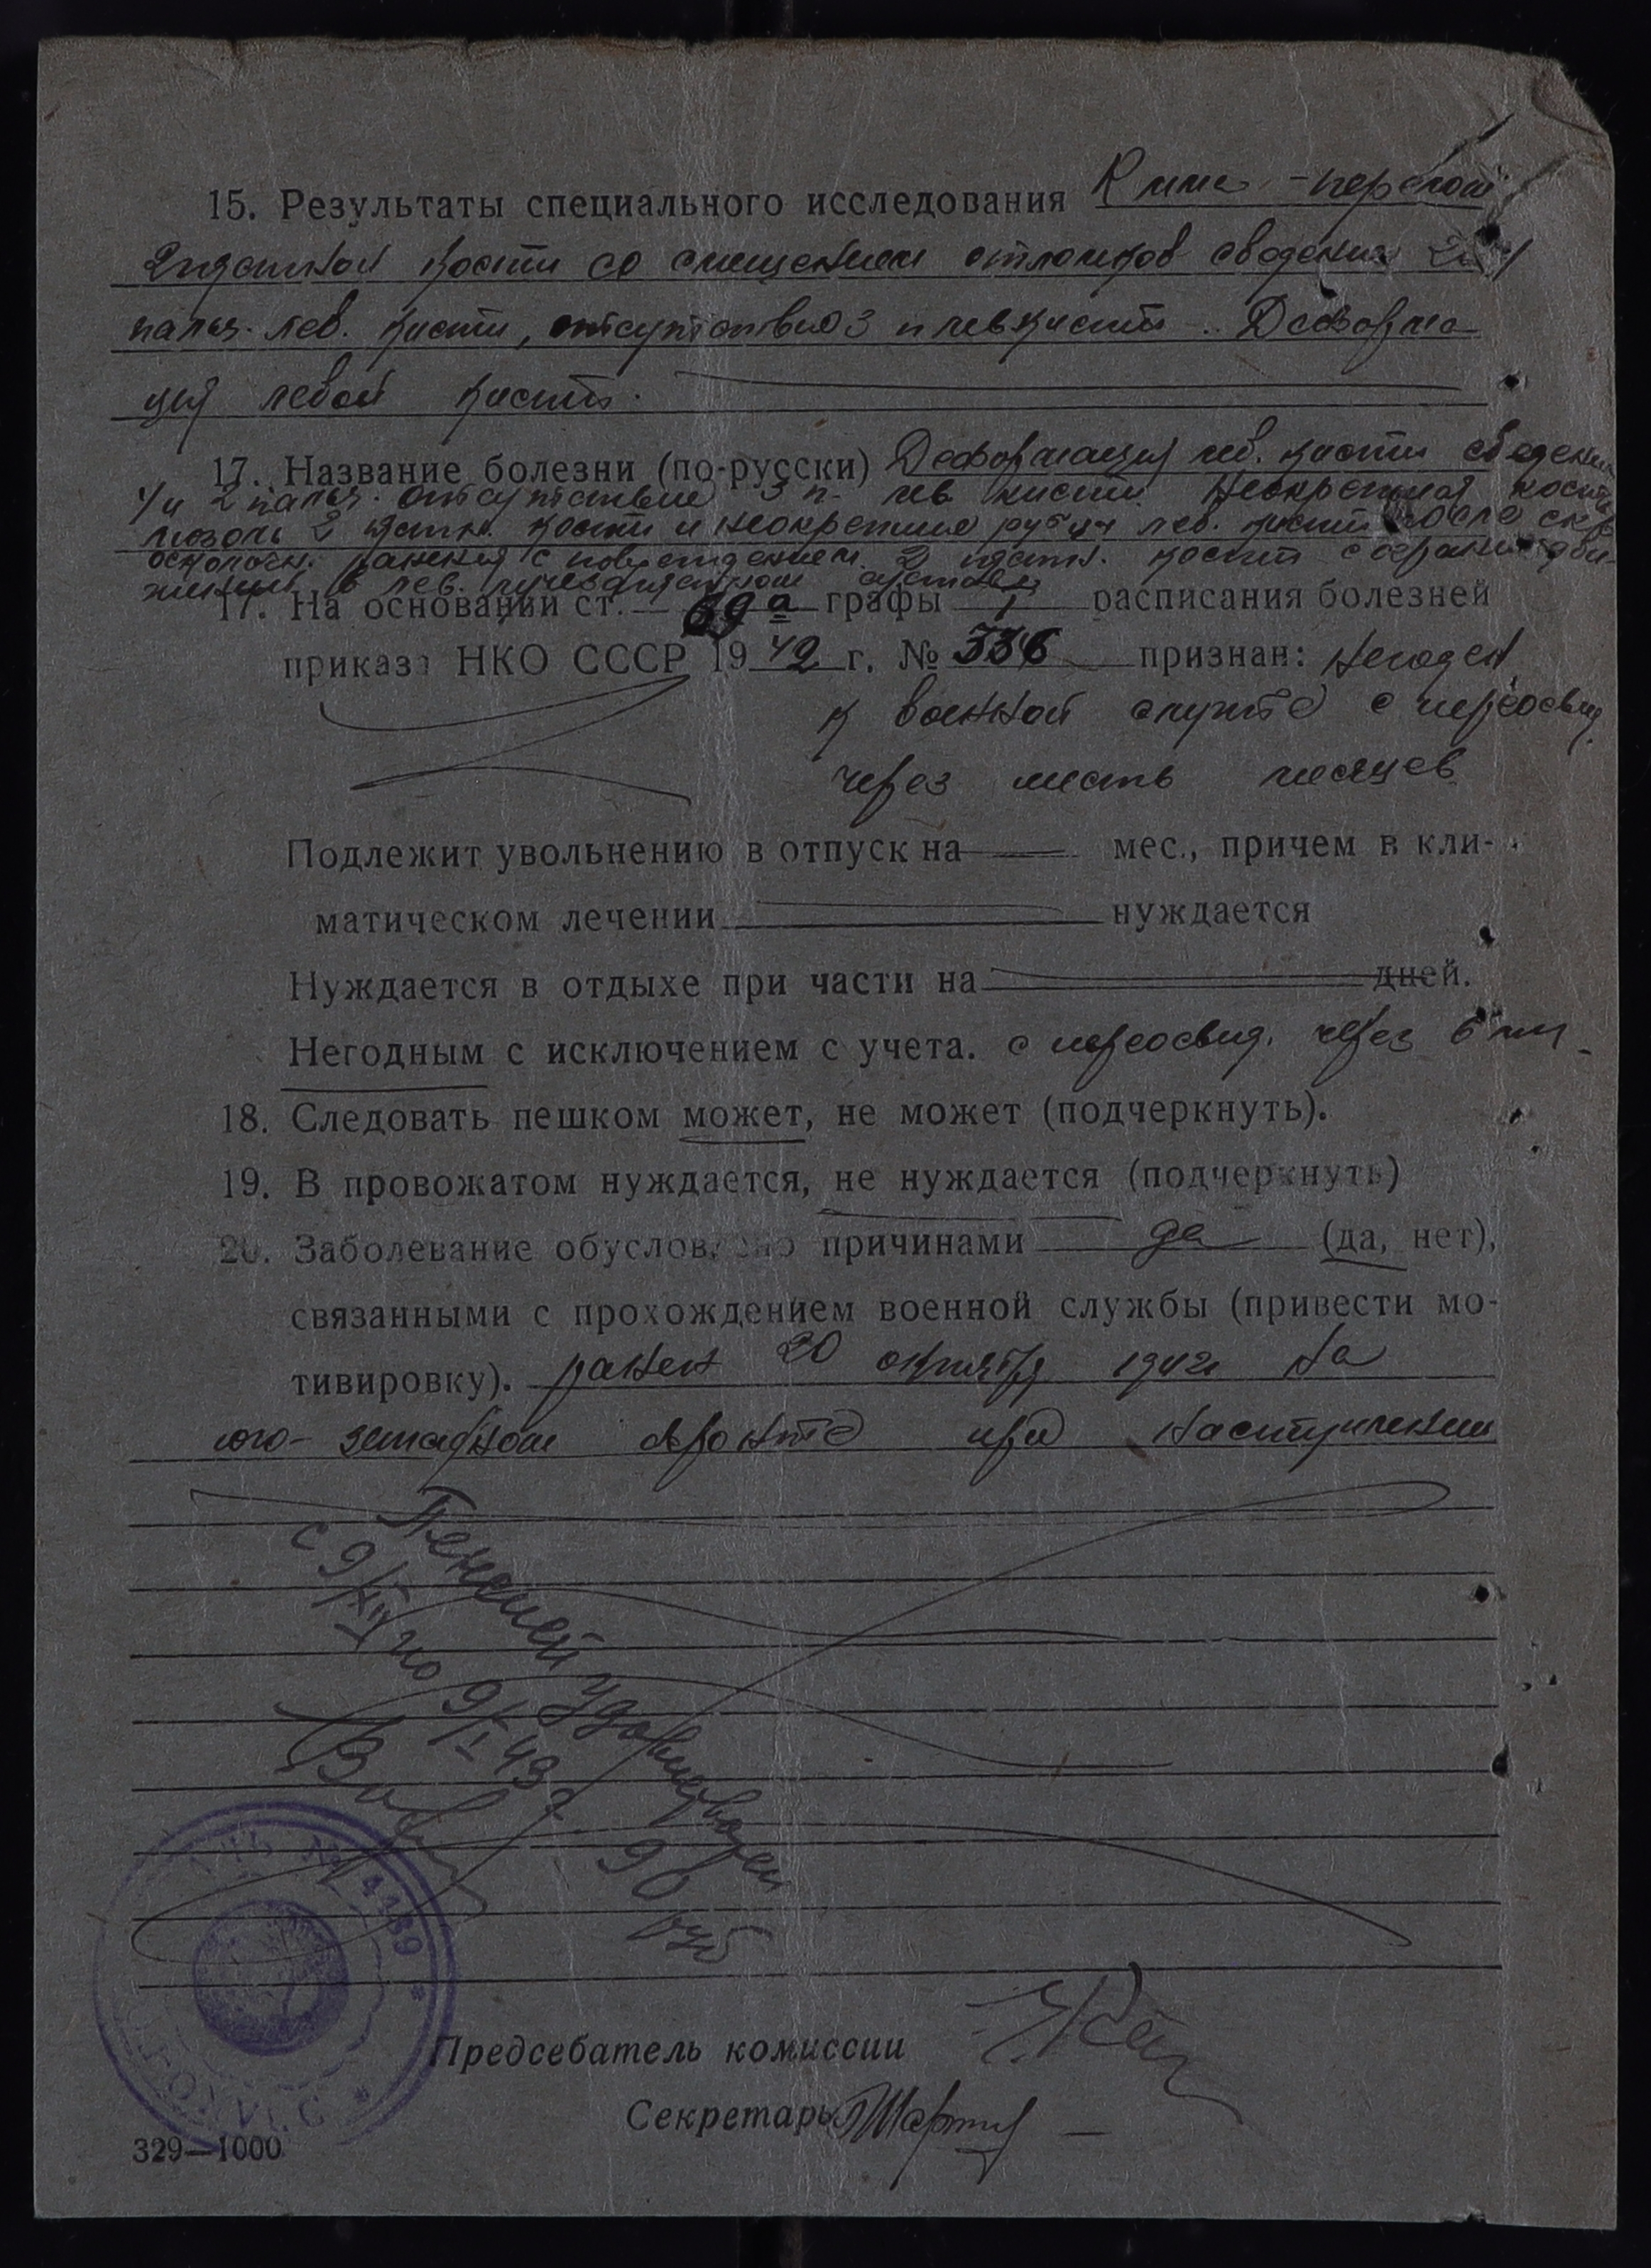 15. Результаты специального исследования R - перелом
2 пястной кости со смещением отломков сведения 2 и
пальц. лев. кисти, отсутствие 3 п лев кисти. Деформа
ция левой кисти.
17. Название болезни (по-русски) Деформация лев. кисти сведение
1/и 2 пальц. отсутствие 3 п. лев кисти. Неокрепшая костн
мозоль 2 пястн. кости и неокрепшие рубцы лев. кисти после
осколочн. ранения с повреждением 2 пястн. кости с огранич дви
жений в лев. лучезапястном суставе
17. На основании ст. 69 а графы I расписания болезней
приказа НКО СССР 1942 г. № 336 признан: Негоден
к военной службе с переосвид
через шесть месяцев
Подлежит увольнению в отпуск на — мес., причем в кли-
матическом лечении нуждается
Нуждается в отдыхе при части на дней.
Негодным с исключением с учета. с переосвид. через 6 м
18. Следовать пешком может, не может (подчеркнуть).
19. В провожатом нуждается, не нуждается (подчеркнуть)
20. Заболевание обусловлено причинами да (да, нет),
связанными с прохождением военной службы (привести мо-
тивировку). ранен 20 октября 1942 на
юго-западном фронте при наступлении
Пенсией удовлетворен
с 9/XII по 9/I 43 г. 90
руб
№ 4189
Председатель комиссии
Секретарь
329—1000